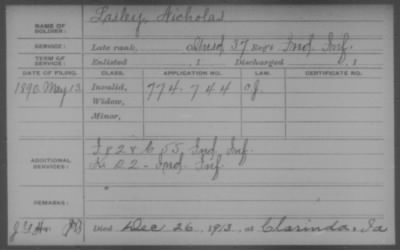 NAME OF SOLDIER: Lasley, Nicholas
SERVICE: Late rank, 37 Reg't Ind. Inf.
TERM OF SERVICE: Enlisted , 1 Discharged , 1
DATE OF FILING. CLASS. APPLICATION NO. LAW. CERTIFICATE NO.
1890. May 13. Invalid, 774.744
Widow,
Minor,
ADDITIONAL SERVICES: 55 Ind. Inf.
K. 52 - Ind. Inf.
REMARKS:
Died Dec 26, 1913, at Clarinda, Ia